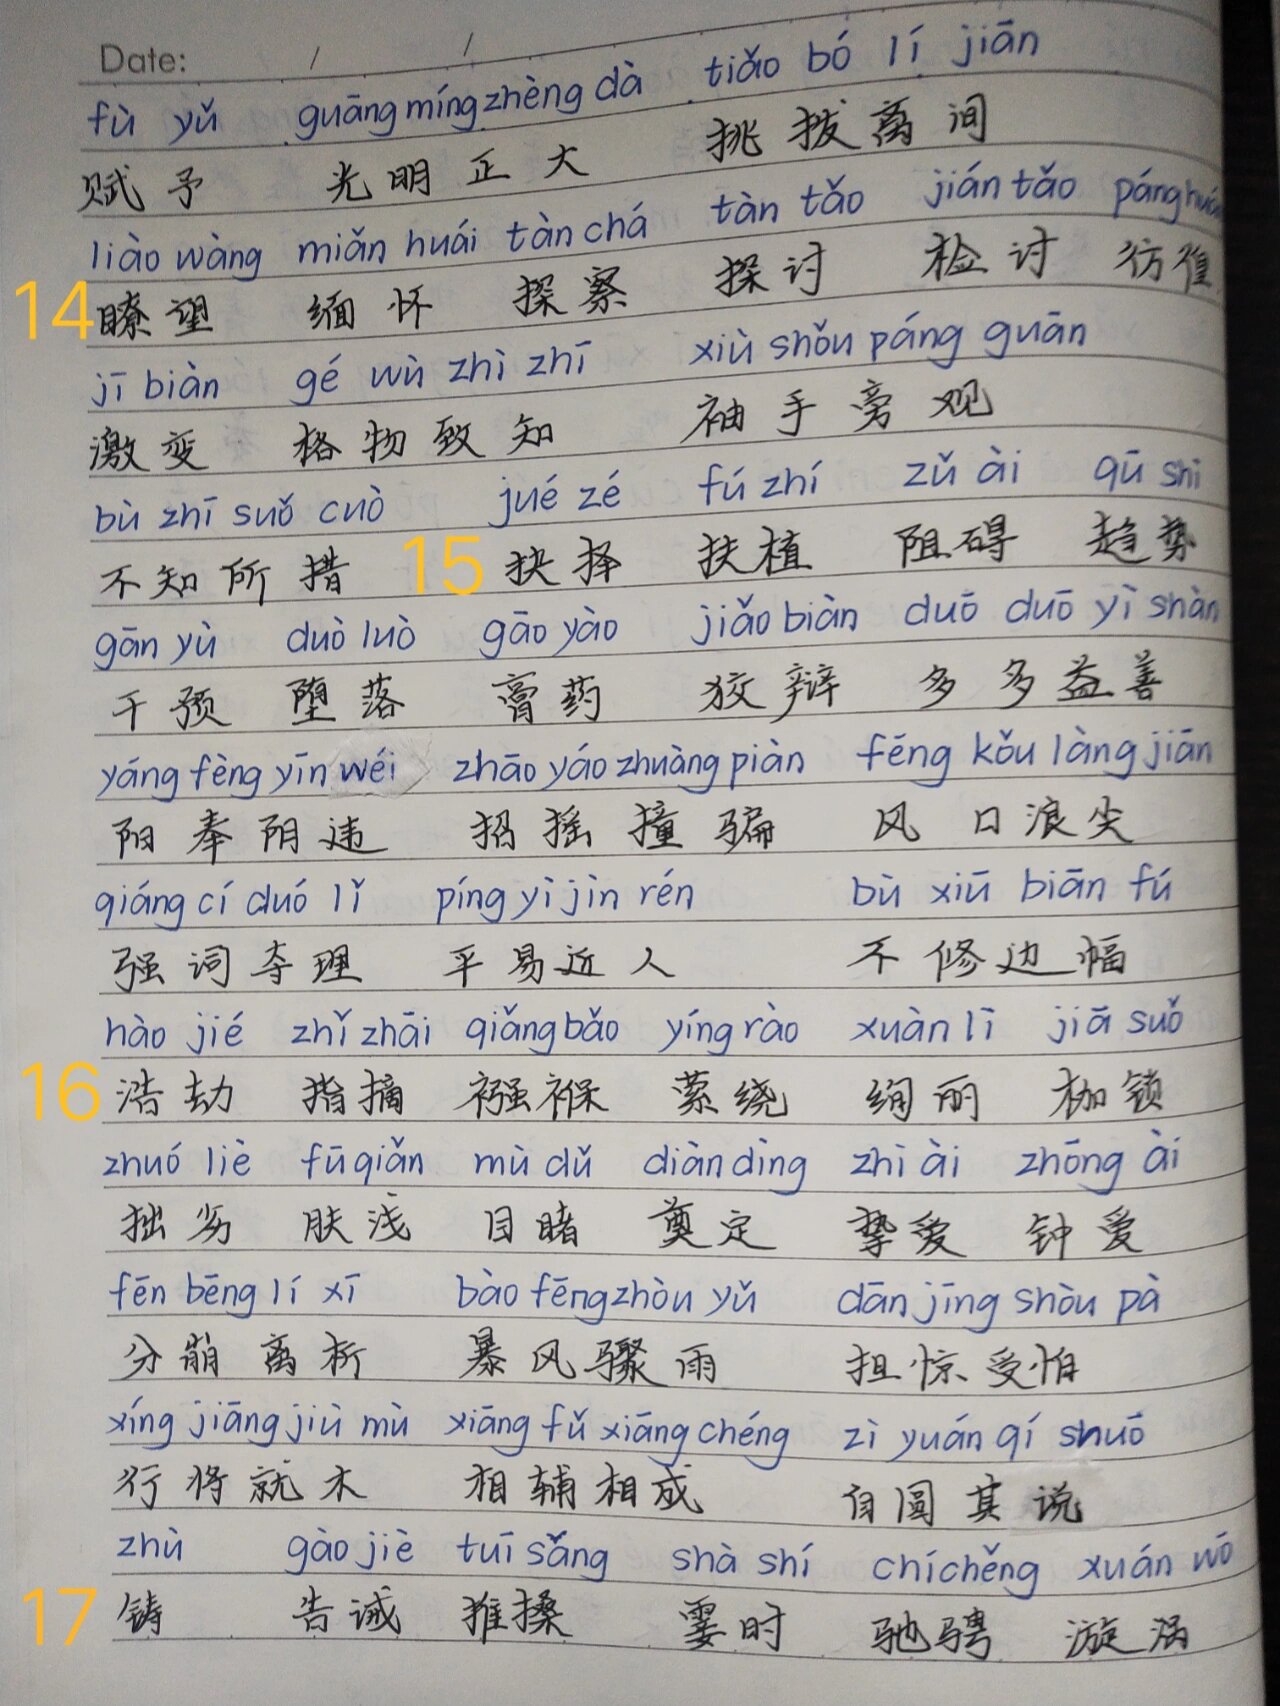 Date: / /
fù yǔ guāng míng zhèng dà tiǎo bó lí jiān
赋予 光明正大 挑拨离间
liào wàng miǎn huái tàn chá tàn tǎo jiǎn tǎo páng huáng
14 瞭望 缅怀 探察 探讨 检讨 彷徨
jī biàn gé wù zhì zhī xiù shǒu páng guān
激变 格物致知 袖手旁观
bù zhī suǒ cuò jué zé fú zhí zǔ ài qū shì
不知所措 15 抉择 扶植 阻碍 趋势
gān yù duò luò gāo yào jiǎo biàn duō duō yì shàn
干预 堕落 膏药 狡辩 多多益善
yáng fèng yīn wéi zhāo yáo zhuàng piàn fēng kǒu làng jiān
阳奉阴违 招摇撞骗 风口浪尖
qiáng cí duó lǐ píng yì jìn rén bù xiū biān fú
强词夺理 平易近人 不修边幅
hào jié zhǐ zhāi qiǎng bǎo yíng rào xuàn lì jiā suǒ
16 浩劫 指摘 襁褓 萦绕 绚丽 枷锁
zhuó liè fū qiǎn mù dǔ diàn dìng zhì ài zhōng ài
拙劣 肤浅 目睹 奠定 挚爱 钟爱
fēn bēng lí xī bào fēng zhòu yǔ dān jīng shòu pà
分崩离析 暴风骤雨 担惊受怕
xíng jiāng jiù mù xiāng fǔ xiāng chéng zì yuán qí shuō
行将就木 相辅相成 自圆其说
zhù gào jiè tuī sǎng shà shí chí chěng xuán wō
17 铸 告诫 推搡 霎时 驰骋 漩涡